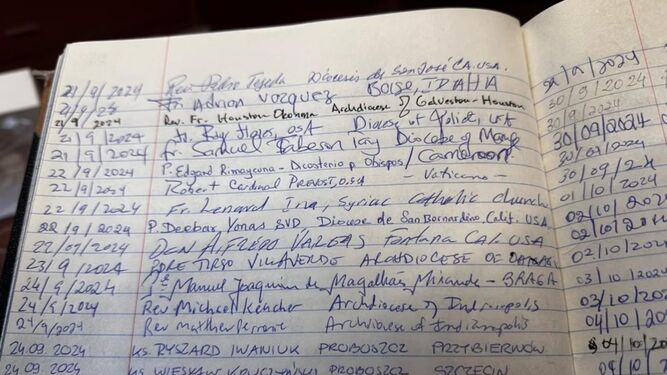 21/9/2024 Rev Pedro Tejeda Diocesis de San José CA. USA.
21/9/23 Fr. Adrian Vazquez Boise, IDAHO
21/9/2024 Rev. Fr. Houston Okonma Archdiocese of Galveston-Houston
21/9/2024 Fr. OSA Diocese of Joliet, USA
21/9/2024 Fr. Samuel Diocese of
22/9/2024 P. Edgard Rimaycuna - Dicasterio p Obispos/ Cameroon
22/9/2024 Robert Cardinal PREVOST, O.S.A - Vaticano -
22/9/2024 Fr. Lenard Ina, Syriac Catholic church
22/9/2024 P. Deebar, Yonas SVD Diocese de San Bernardino, Calif. USA.
22/09/2024 Don ALFREDO VARGAS Fontana CAL USA
23/9/2024 PDRE TIRSO VILLAVERDE ARCHDIOCESE OF
24/9/2024 Pe Manuel Joaquim de Magalhães Miranda - BRAGA
24/9/2024 Rev Michael Keucher Archdiocese of Indianapolis
24/9/2024 Rev Matthew Perronie Archdiocese of Indianapolis
24.09.2024 KS. RYSZARD IWANIUK PROBOSZCZ
24.09.2024 KS WIESŁAW PROBOSZCZ SZCZECIN
30/9/2024
30/9/2024
30/09/2024
30/09/2024
30/09/24
01/10/2024
02/10/2024
02/10/2024
02/10/2024
03/10/2024
03/10/2024
04/10/2024
04/10/20
04/10/20